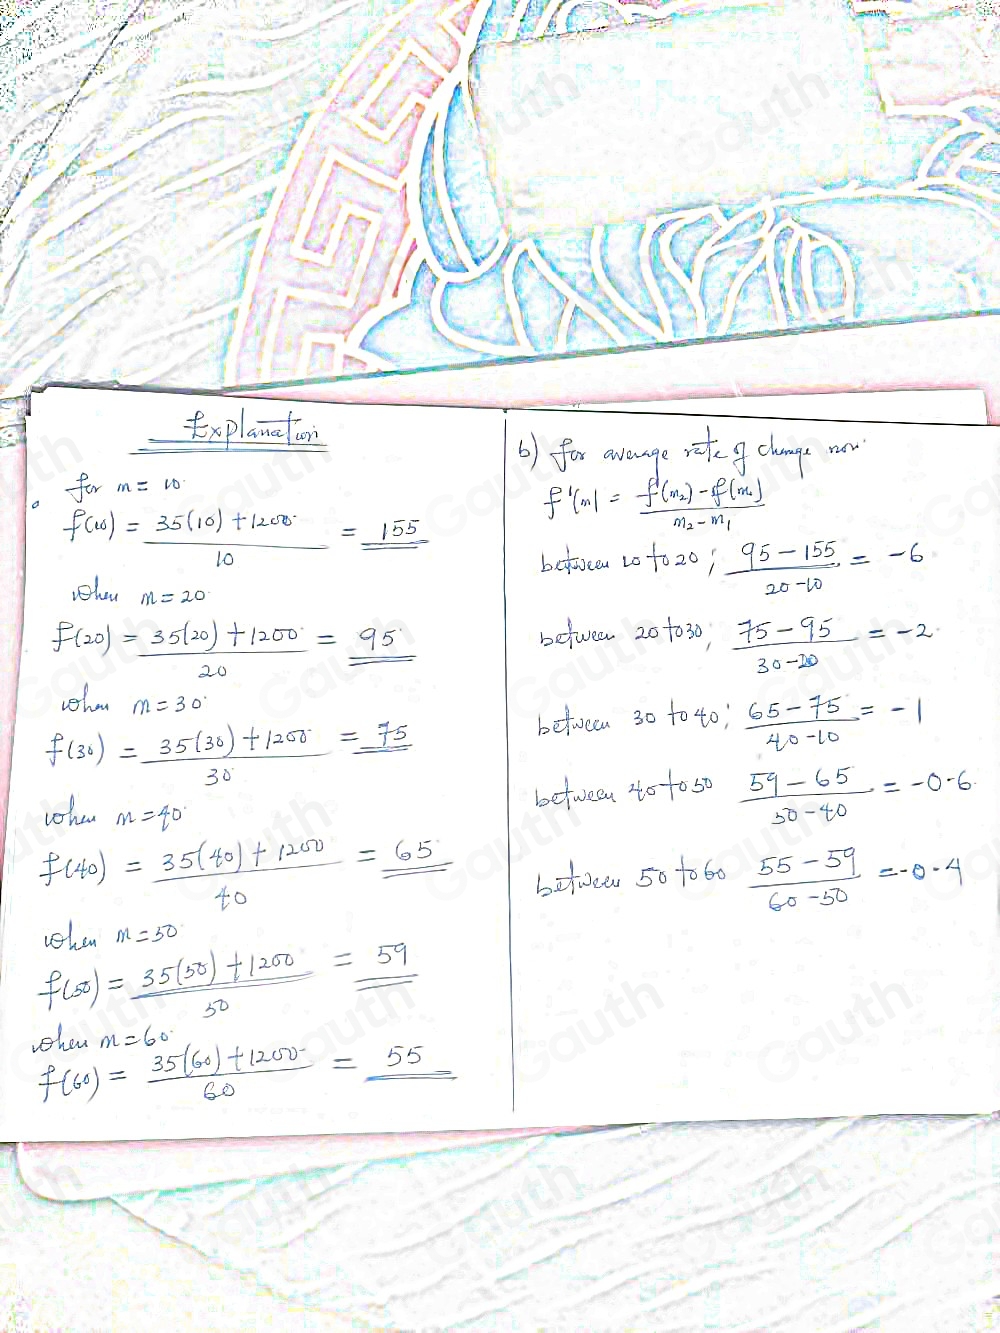 Explanation
for m = 10.
f(10) = 35(10) + 1200 / 10 = 155
when m = 20
f(20) = 35(20) + 1200 / 20 = 95
when m = 30
f(30) = 35(30) + 1200 / 30 = 75
when m = 40
f(40) = 35(40) + 1200 / 40 = 65
when m = 50
f(50) = 35(50) + 1200 / 50 = 59
when m = 60
f(60) = 35(60) + 1200 / 60 = 55
b) for average rate of change now
f'(m) = f(m₂) - f(m₁) / m₂ - m₁
between 10 to 20; 95 - 155 / 20 - 10 = -6
between 20 to 30; 75 - 95 / 30 - 20 = -2
between 30 to 40; 65 - 75 / 40 - 10 = -1
between 40 to 50 59 - 65 / 50 - 40 = -0.6
between 50 to 60 55 - 59 / 60 - 50 = -0.4
Gauth